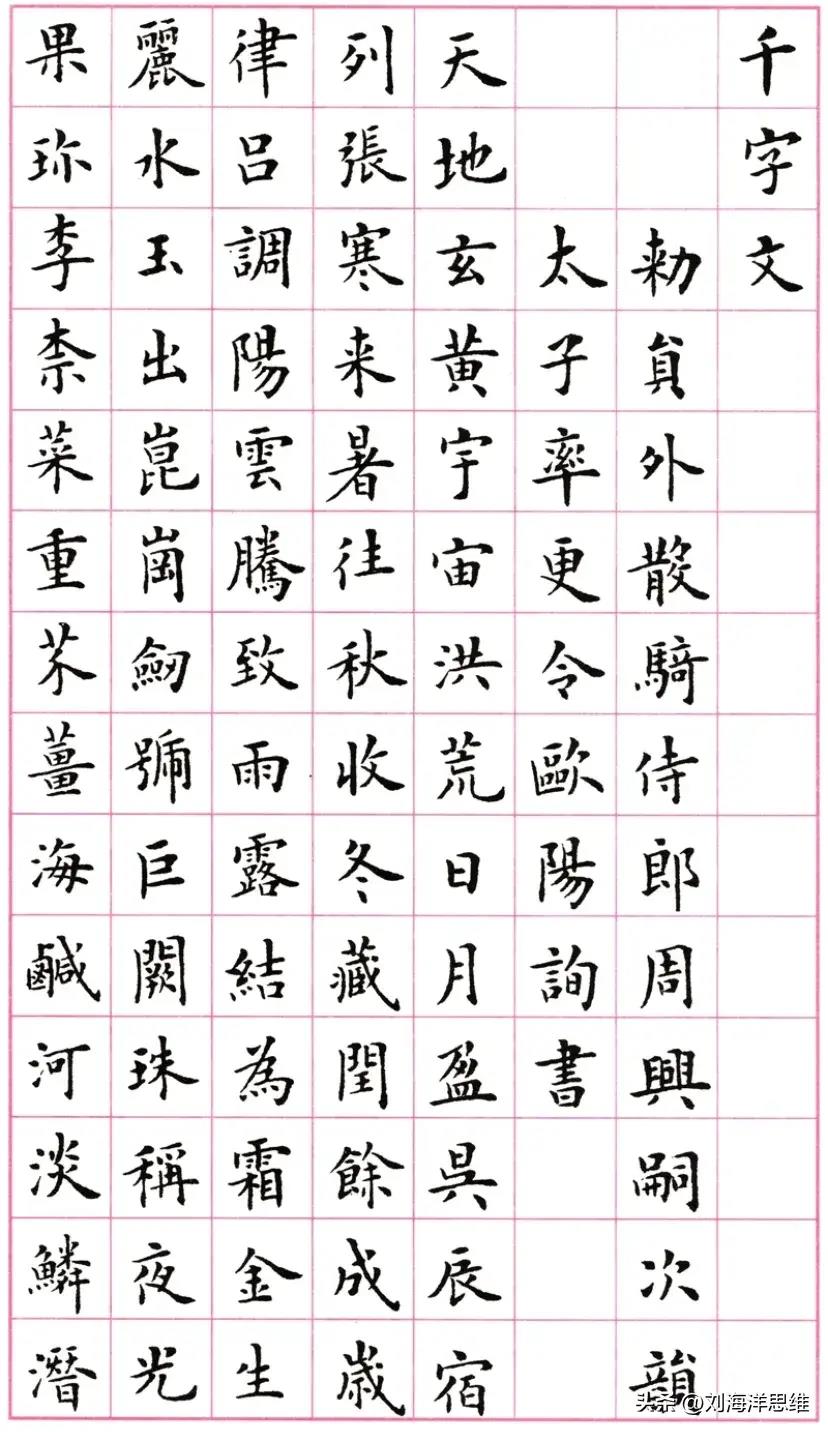 千字文
勑員外散騎侍郎周興嗣次韻
太子率更令歐陽詢書
天地玄黃宇宙洪荒日月盈昃辰宿
列張寒来暑往秋收冬藏閏餘成歲
律呂調陽雲騰致雨露結為霜金生
麗水玉出崑崗劒號巨闕珠稱夜光
果珎李柰菜重芥薑海鹹河淡鱗潛
头条 @刘海洋思维